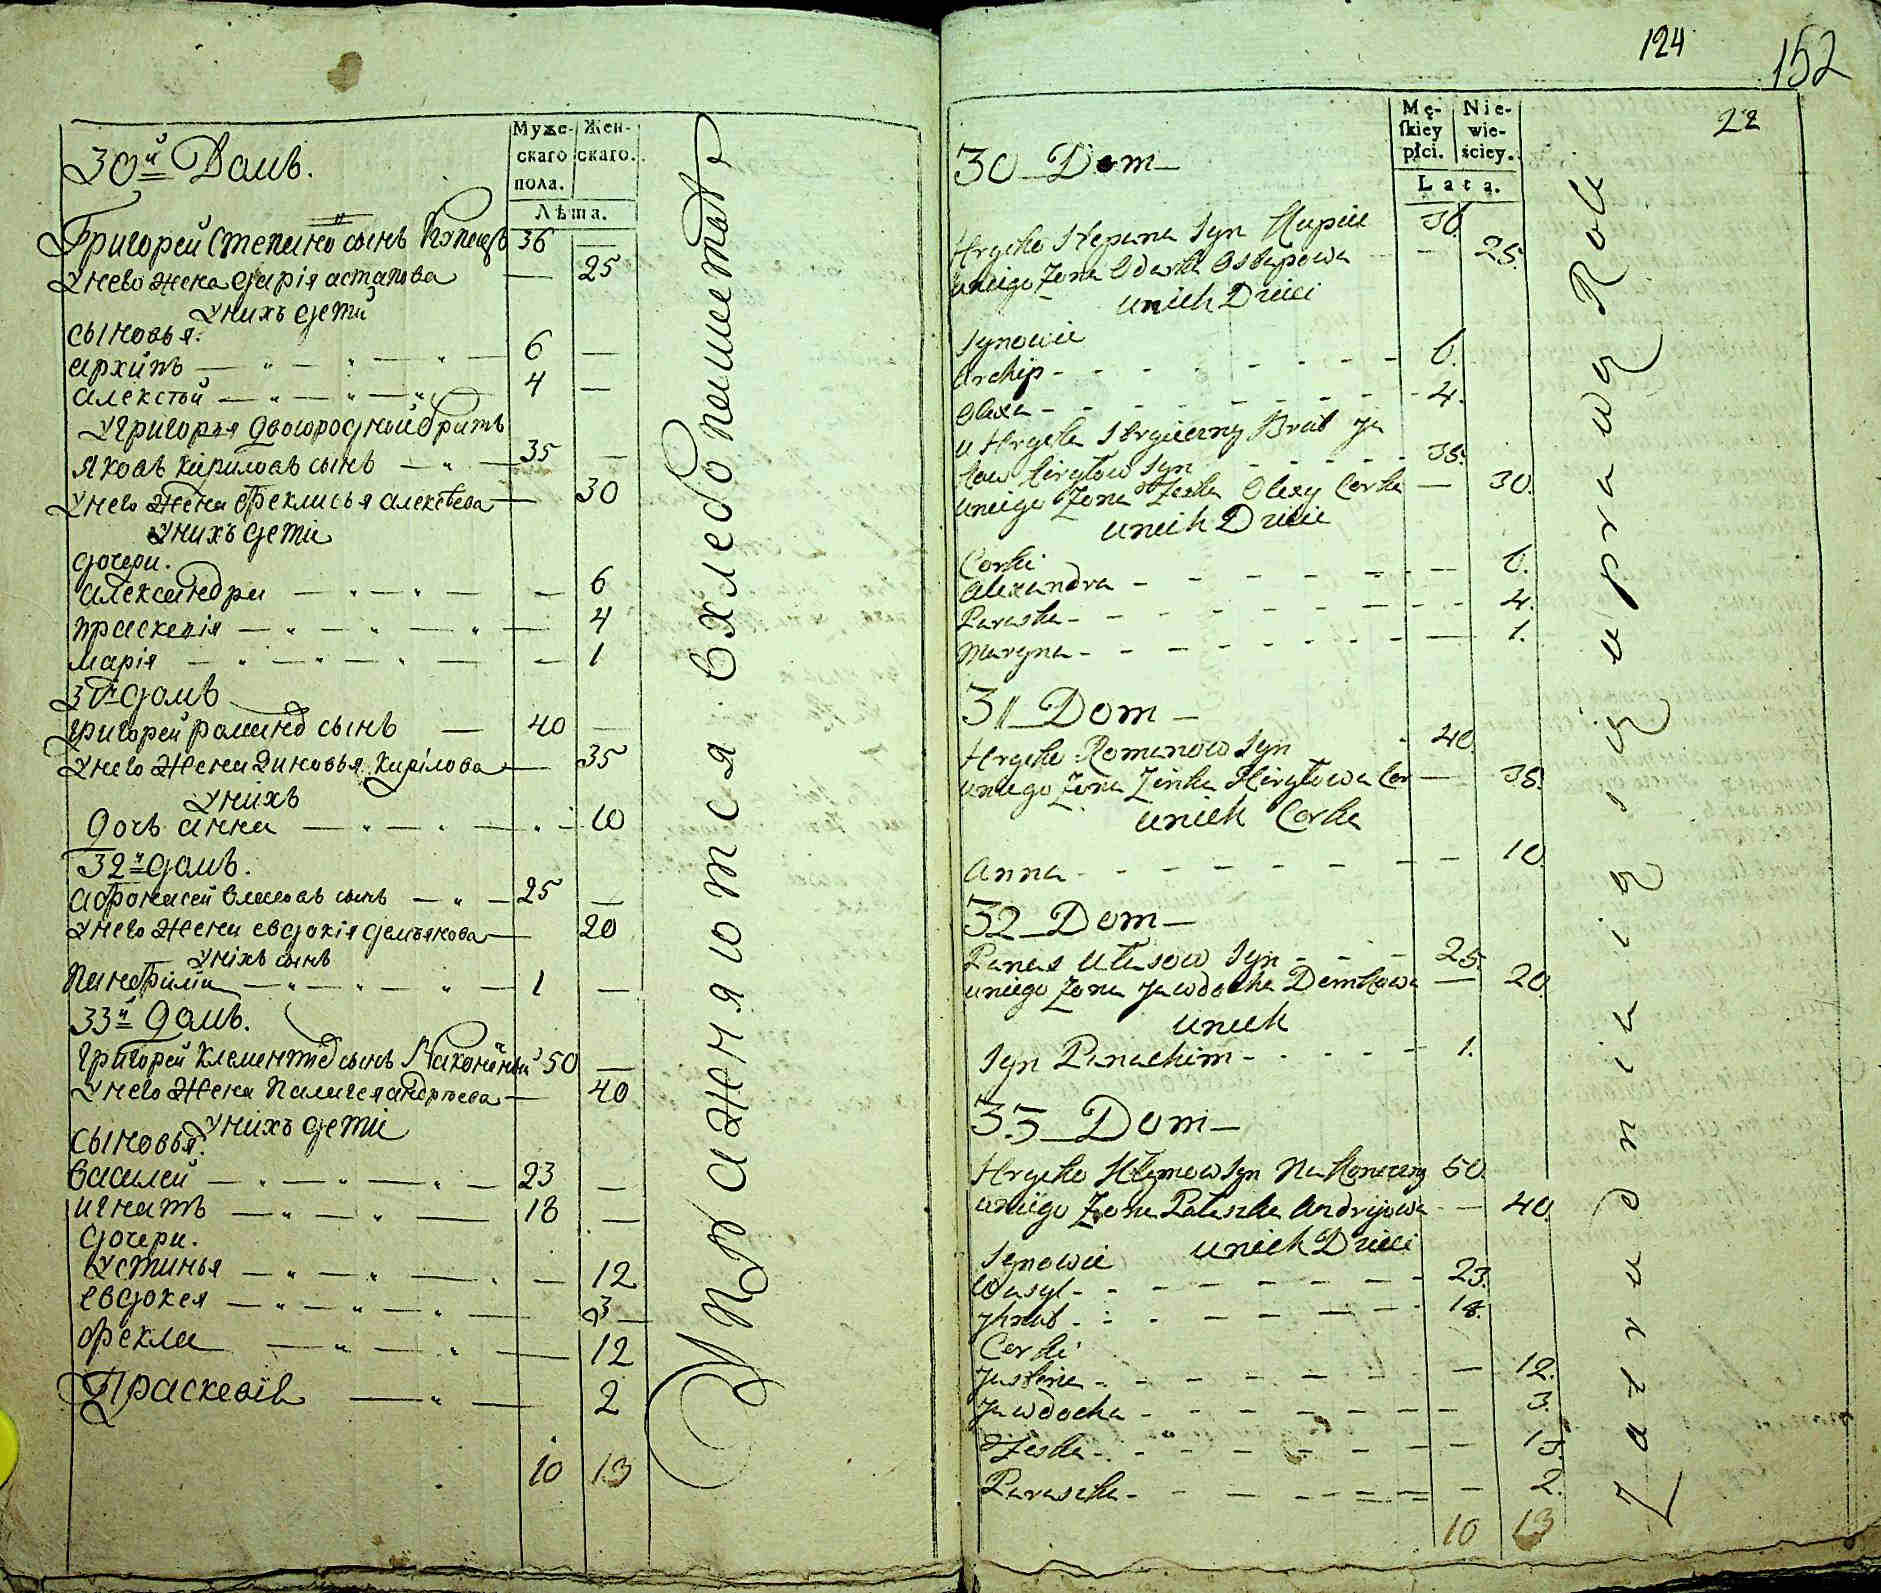 Муже-
скаго
пола.
Жен-
скаго.
Лѣта.
30й Домъ.
Григорей Степановъ сынъ Купецъ 36 —
Унево жена Дарія астапова — 25
Унихъ дети
сыновья.
архипъ 6 —
алексѣй 4 —
У григорья двоюродной братъ
Яковъ кириловъ сынъ 35 —
Унево жена Феклисья алексѣева — 30
Унихъ дети
дочери.
александра — 6
праскевія — 4
Марія — 1
31й домъ
григорей романовъ сынъ 40 —
Унего жена Зиновья Кирілова — 35
Унихъ
Дочь анна — 10
32й домъ.
афонасей власовъ сынъ 25 —
Унего жена евдокія демьянова — 20
Уніхъ сынъ
1 —
33й Домъ.
григорей клементьевъ сынъ Наконечный 50 —
Унего жена Палагея андрѣева — 40
Унихъ дети
Сыновья.
василей 23 —
игнатъ 18 —
дочери.
Устинья — 12
евдокея — 3
фекла — 12
Праскевія — 2
10 13
Упражняются в хлебопашестве
124
152
22
Mę-
ſkiey
płci.
Nie-
wie-
ściey.
Lata.
30 Dom
Hryćko Stepana Syn Kupiec 36.
uniego Zona Odarka Ostapowa — 25.
unich Dzieci
Synowie
Archip 6.
Olexa 4.
u Hryćka Stryieczny Brat Ja
kow Kiryłow Syn 35.
uniego Zona Feska Olexy Corka — 30.
unich Dzieci
Corki
Alexandra — 6.
Paraska — 4.
Maryna — 1.
31 Dom
Hryćko Romanow Syn 40.
uniego Zona Zinka Kiryłowa Cor — 35.
unich Corka
Anna — 10.
32 Dom
Panas Ułasow Syn 25.
uniego Zona Jawdocha Demkowa — 20.
unich
Syn Panachim 1.
33 Dom
Hryćko Klymow Syn Nakoneczny 50.
uniego Zona Pałaszka Andryjowa — 40.
unich Dzieci
Synowie
Wasyl 23.
Yhnat 18.
Corki
Justina — 12.
Jawdocha — 3.
Feska — 12.
Paraska — 2.
10 13
Zatrudniaią się uprawą Roli